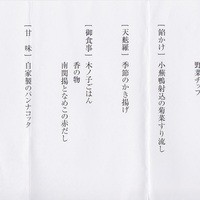 野菜チップ
[餡かけ] 小蕪鴨射込の菊菜すり流し
[天麩羅] 季節のかき揚げ
[御食事] 木ノ子ごはん
香の物
南関揚となめこの赤だし
[甘 味] 自家製のパンナコッタ